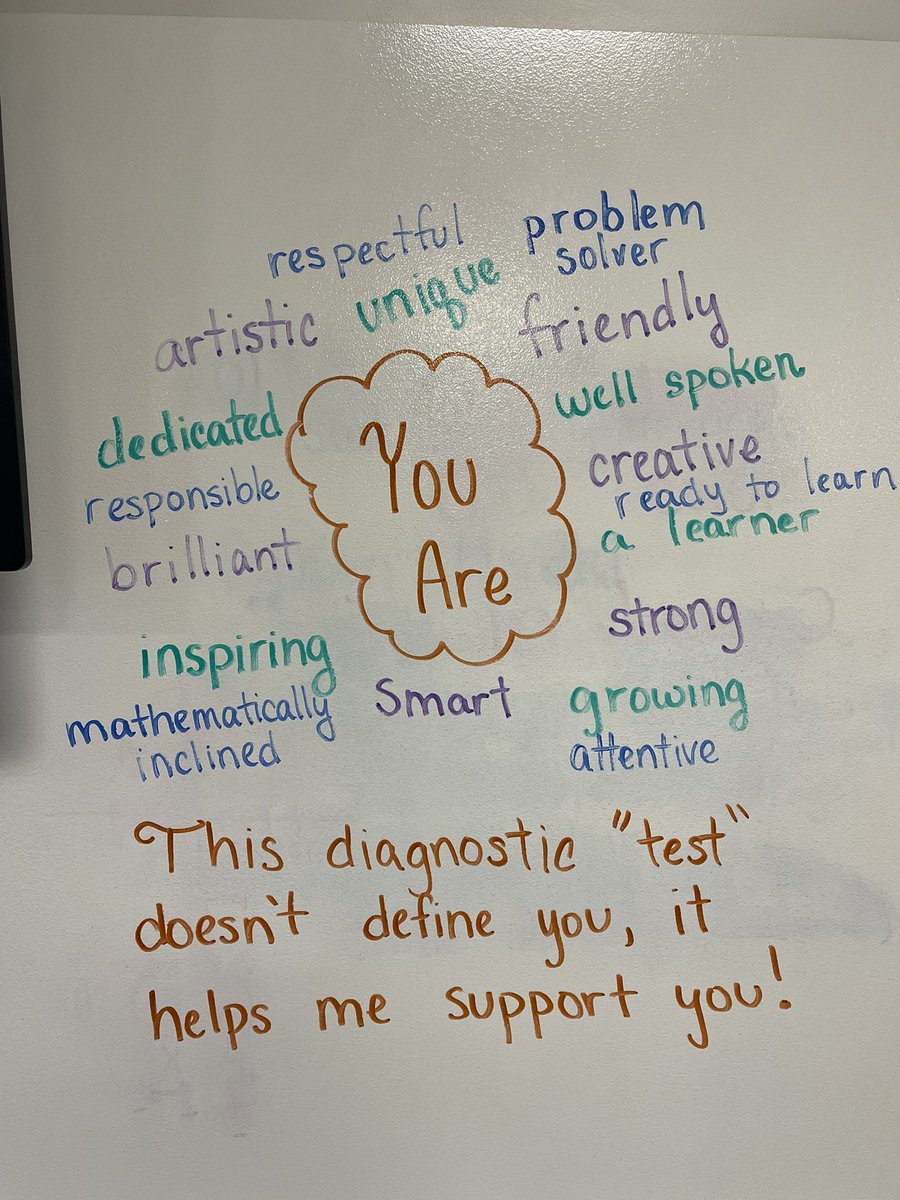 respectful
problem
solver
artistic
unique
friendly
dedicated
well spoken
responsible
creative
ready to learn
brilliant
a learner
You
Are
strong
inspiring
mathematically
inclined
Smart
growing
attentive
This diagnostic "test"
doesn't define you, it
helps me support you!